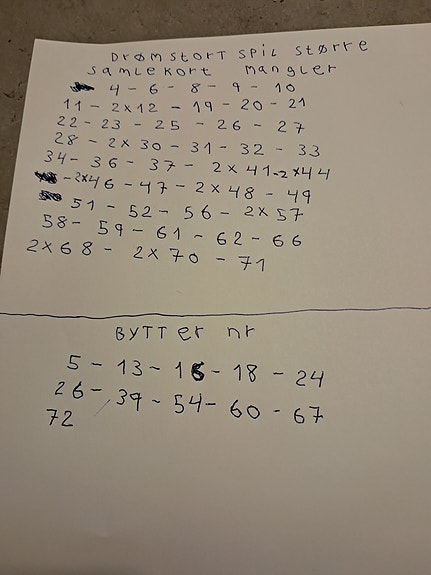 DRØMSTORT SPIL STØRRE
SAMLEKORT MANGLER
4 - 6 - 8 - 9 - 10
11 - 2x12 - 19 - 20 - 21
22 - 23 - 25 - 26 - 27
28 - 2x30 - 31 - 32 - 33
34 - 36 - 37 - 2x41 - 2x44
- 2x46 - 47 - 2x48 - 49
51 - 52 - 56 - 2x57
58 - 59 - 61 - 62 - 66
2x68 - 2x70 - 71
BYTTER nr
5 - 13 - 16 - 18 - 24
26 - 39 - 54 - 60 - 67
72